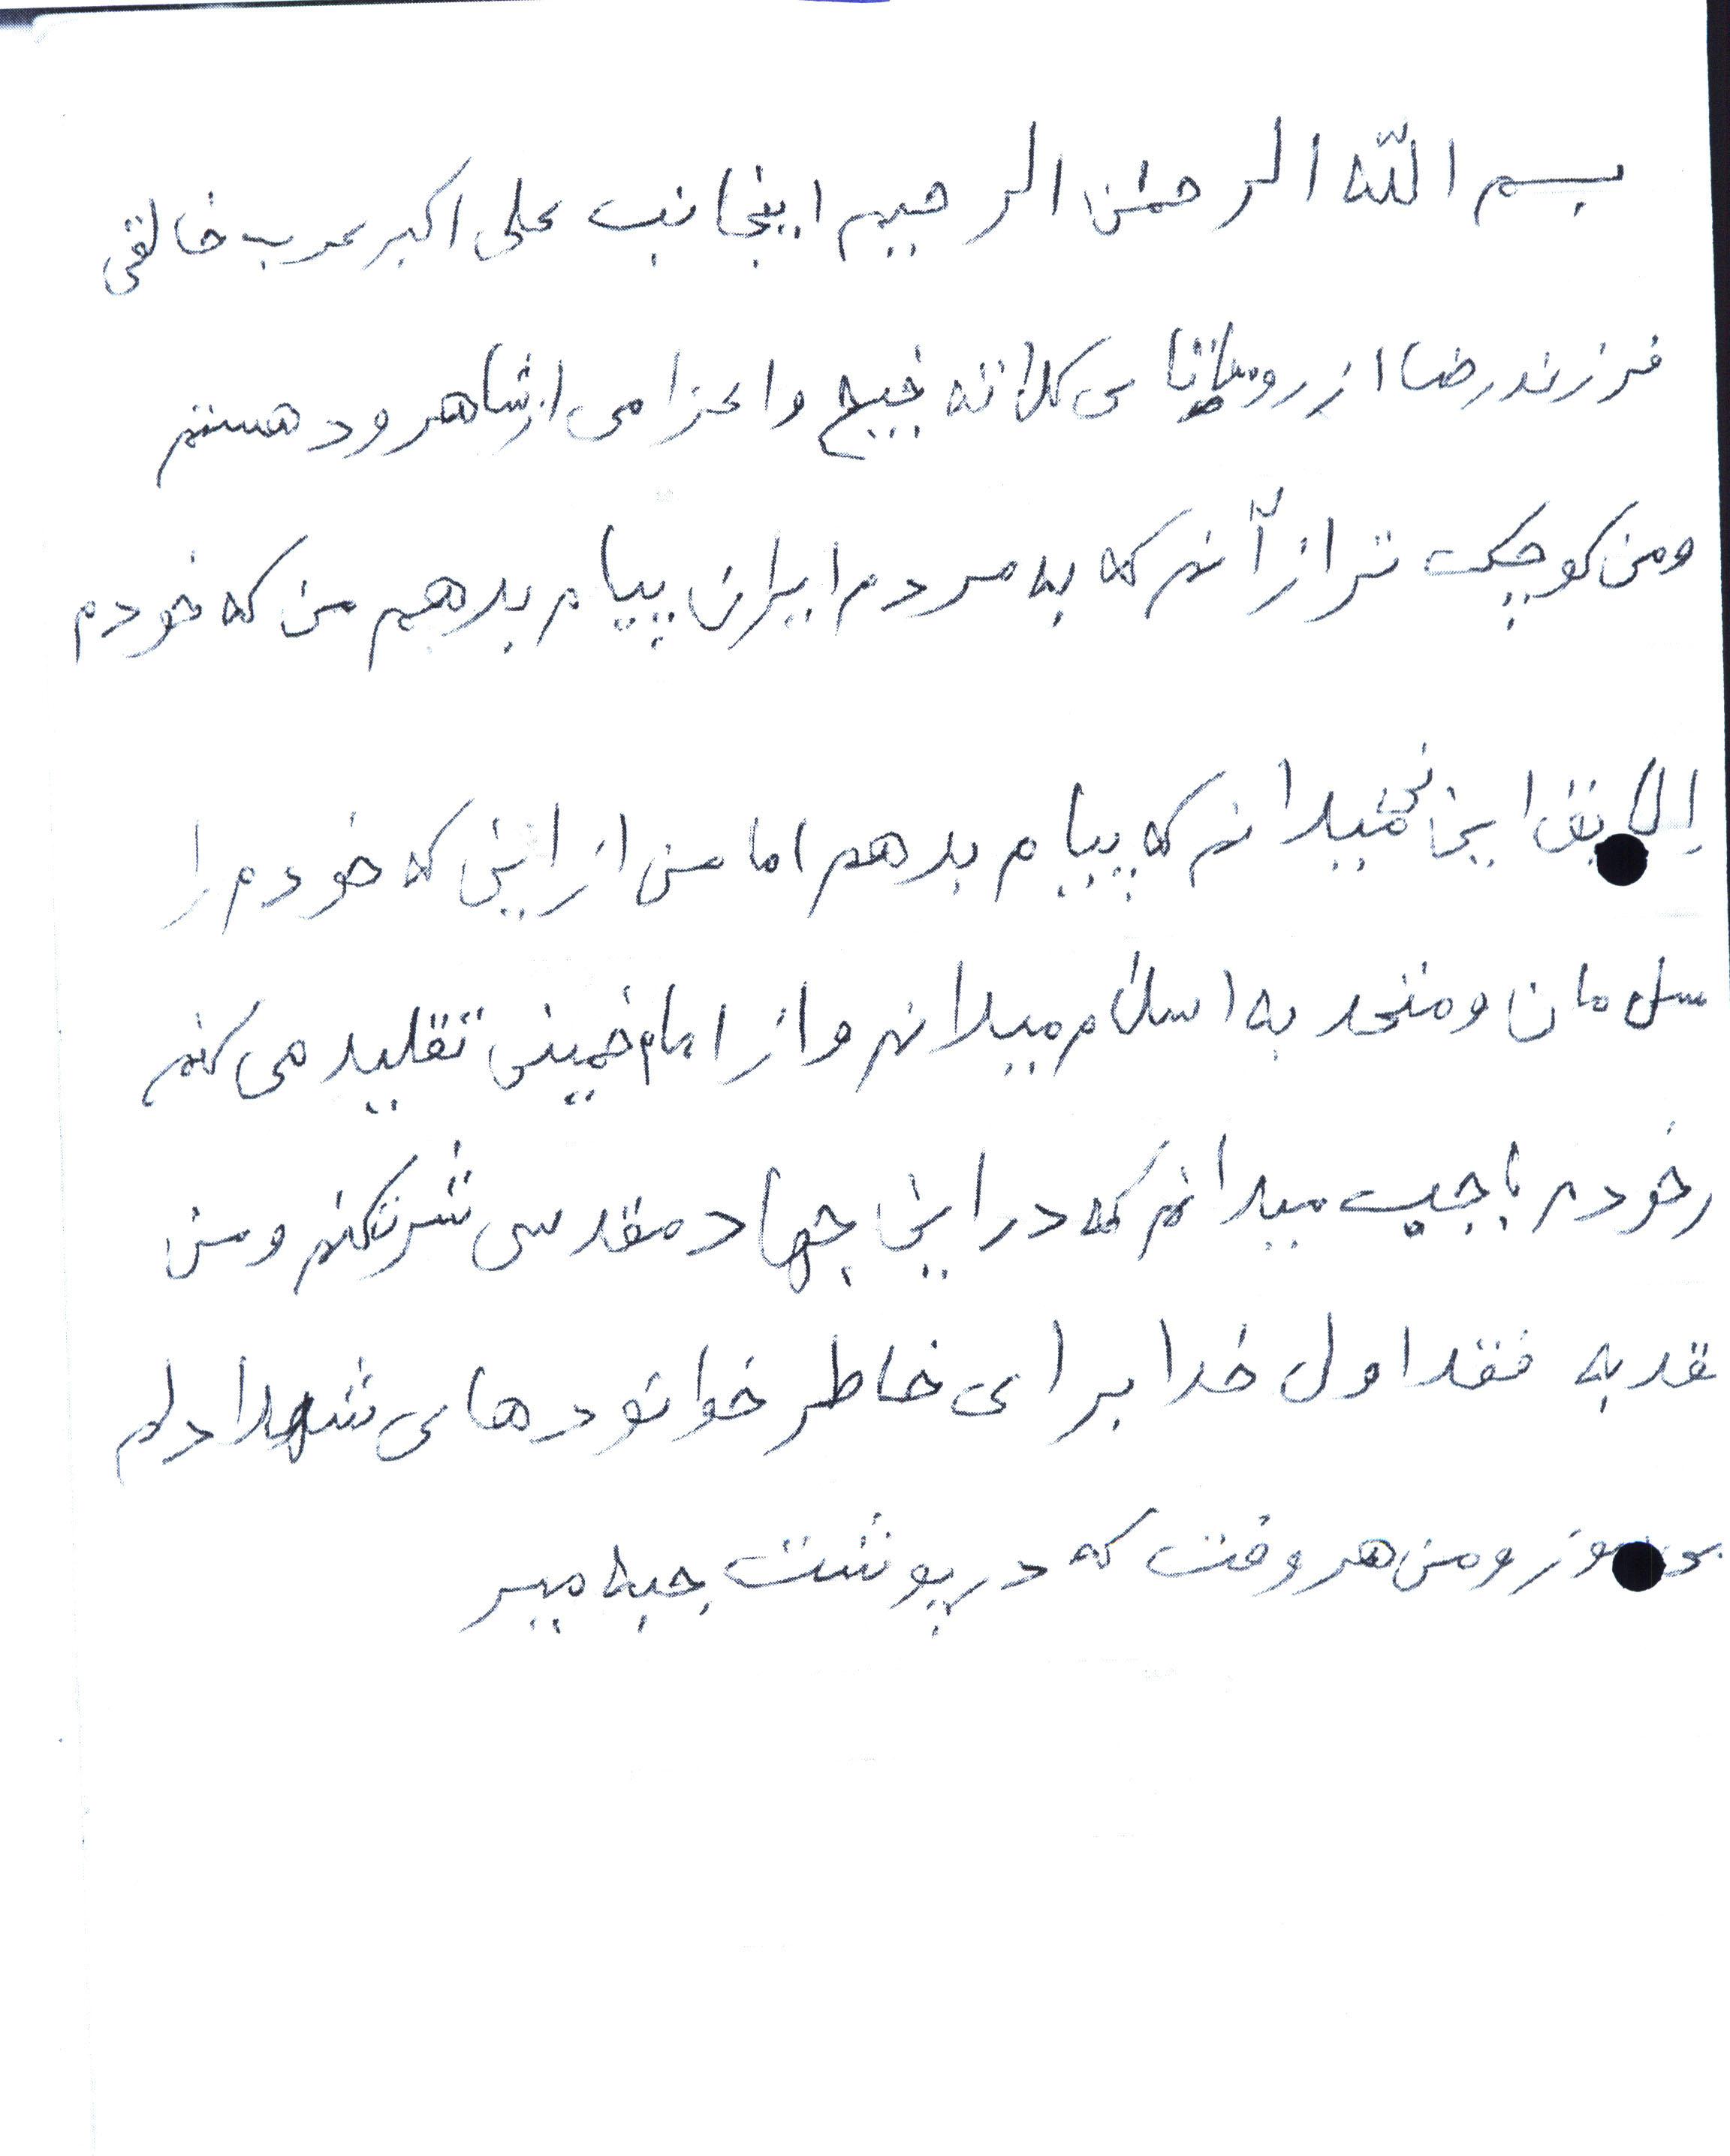 بسم اللّه الرحمن الرحیم اینجانب علی اکبر عرب خالقی
فرزند رضا از روستا ی کلاته خیج و اعزامی از شاهرود هستم
و من کوچک تر از آنم که به مردم ایران پیام بدهم من که خودم
را لایق این نمیدانم که پیام بدهم اما من از این که خودم را
مسل مان و متحد به اسلام میدانم و از امام خمینی تقلید می کنم
خودم باجیب میدانم که در این جهاد مقدس شرتکنم و من
فقد اول خدا برای خاطر خوانود های شهدا دلم
وز و من هر وقت که در پوشت جبه میر